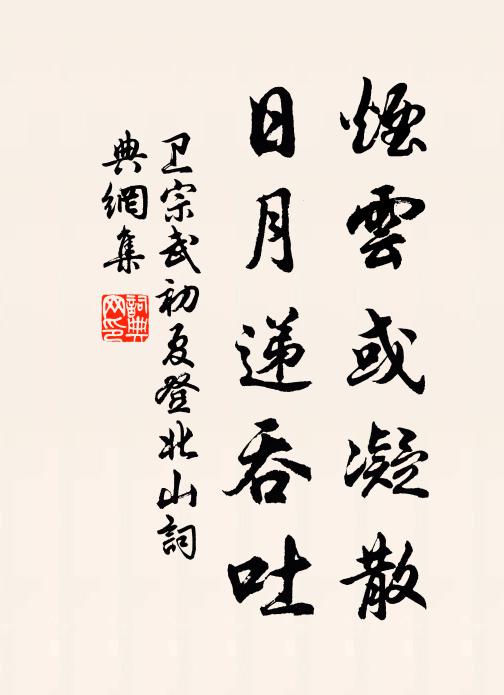 煙雲或凝散
日月递吞吐
卫宗武初夏登北山詞
典網集
詞典网印